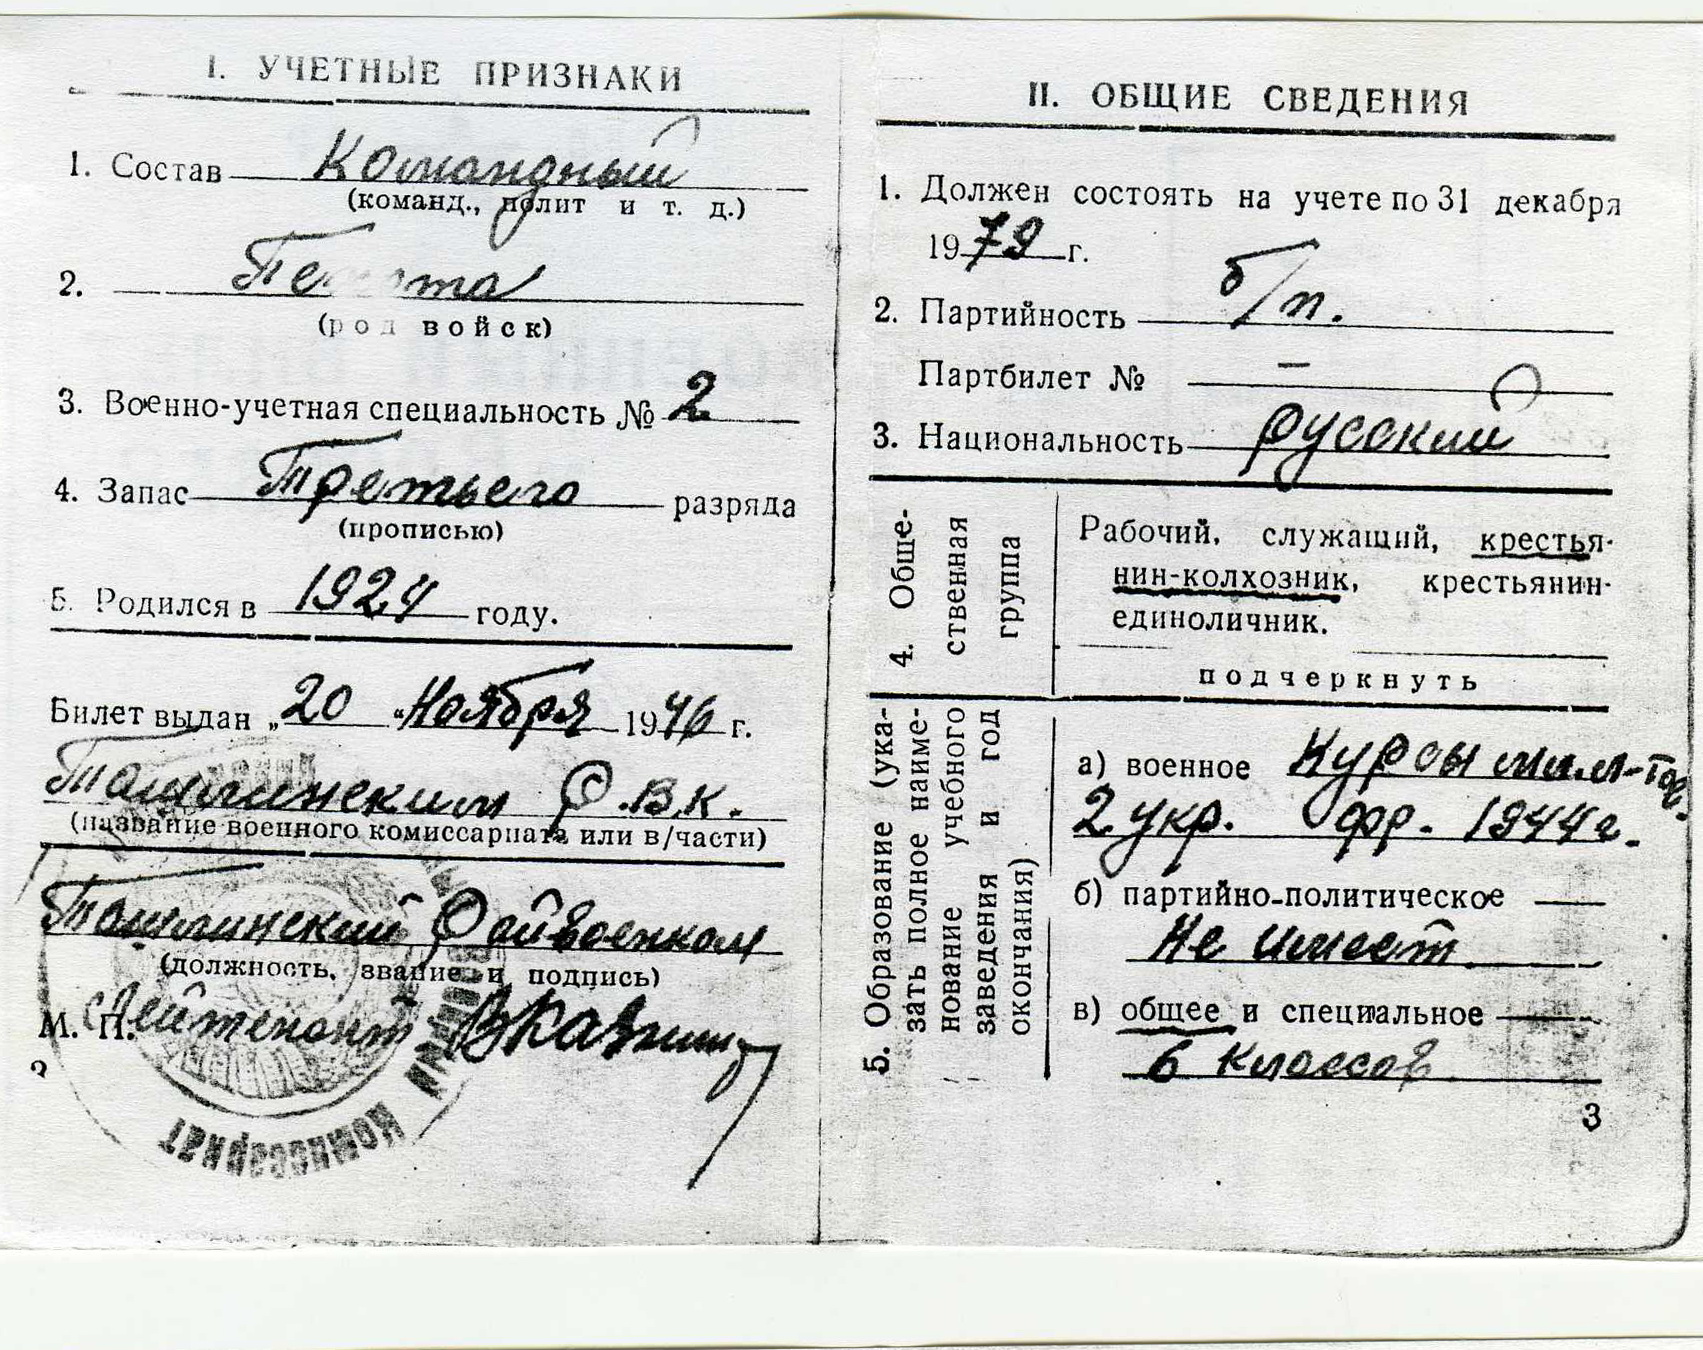 I. УЧЕТНЫЕ ПРИЗНАКИ
1. Состав Командный
(команд., полит и т. д.)
2. Пехота
(род войск)
3. Военно-учетная специальность № 2
4. Запас Третьего разряда
(прописью)
5. Родился в 1924 году.
Билет выдан „20 " Ноября 1946 г.
Р.В.К.
(название военного комиссариата или в/части)
Райвоенком
(должность, звание и подпись)
М. П. Лейтенант
комиссариат
2
II. ОБЩИЕ СВЕДЕНИЯ
1. Должен состоять на учете по 31 декабря
1979 г.
2. Партийность б/п.
Партбилет № —
3. Национальность русский
4. Обще-
ственная
группа
Рабочий, служащий, крестья-
нин-колхозник, крестьянин-
единоличник.
подчеркнуть
5. Образование (ука-
зать полное наиме-
нование учебного
заведения и год
окончания)
а) военное Курсы мл. л-тов
2 укр. фр. 1944 г.
б) партийно-политическое
Не имеет
в) общее и специальное
6 классов
3